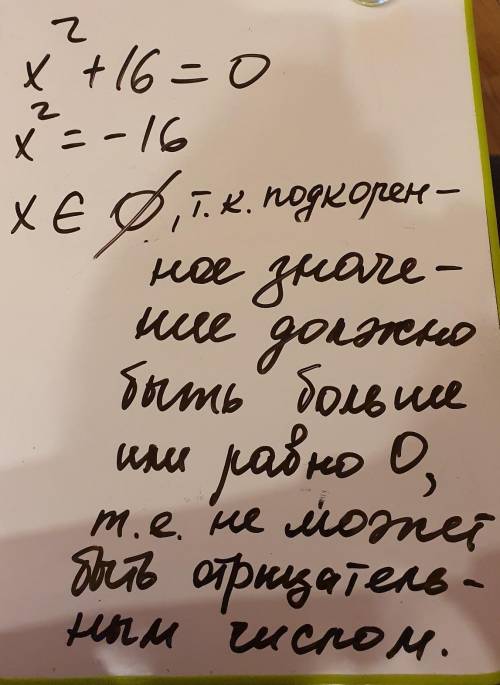 x² + 16 = 0
x² = -16
x ∈ ∅, т.к. подкорен-
ное значе-
ние должно
быть больше
или равно 0,
т.е. не может
быть отрицатель-
ным числом.